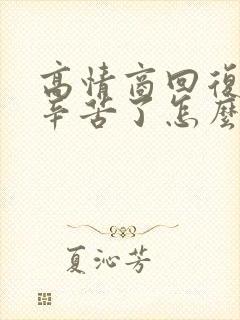 高情商回復
辛苦了怎麼
夏沁芳